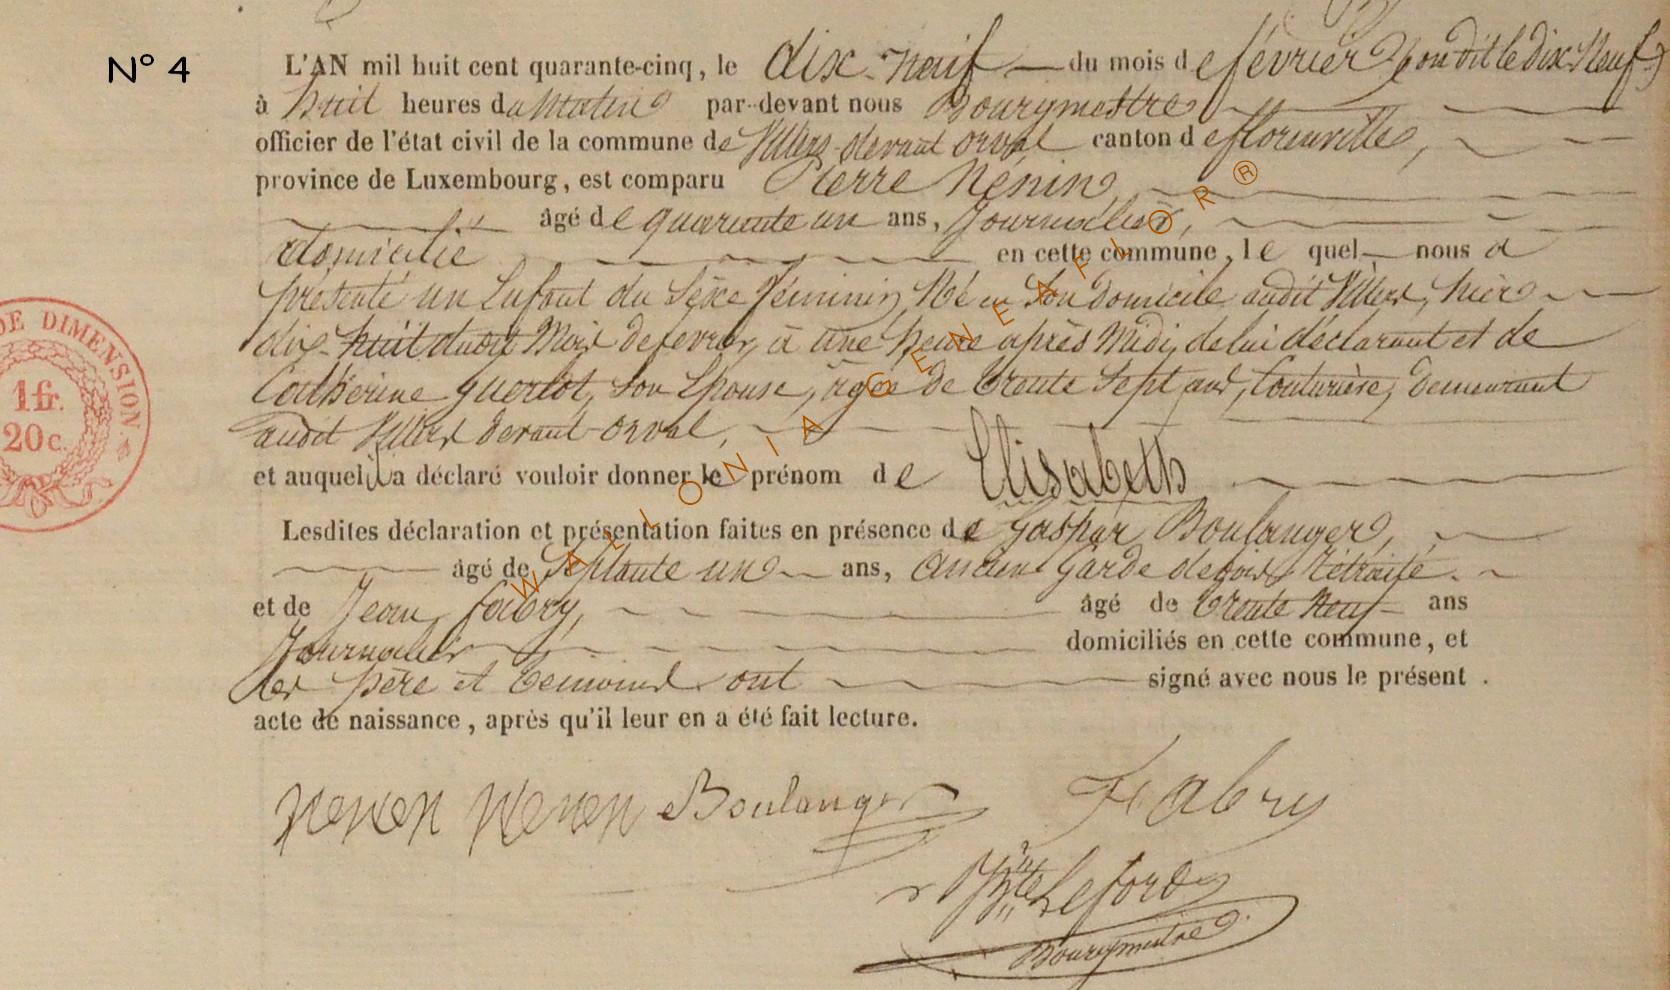 N° 4
L'AN mil huit cent quarante-cinq, le dix-neuf du mois de février (on dit le dix neuf)
à huit heures du Matin par-devant nous Bourgmestre
officier de l'état civil de la commune de Villers devant orval canton de florenville,
province de Luxembourg, est comparu Pierre Nenin,
âgé de quarante un ans, Journalier,
domicilié en cette commune, le quel nous a
présenté un Enfant du Sexe féminin, Né en Son Domicile audit Villers, hier
dix-huit du dit Mois de fevrier, à une heure après Midi, de lui déclarant et de
Catherine Son Epouse, âgée de trente Sept ans, Couturière, demeurant
audit Villers devant-orval,
et auquel il a déclaré vouloir donner le prénom de Elisabeth
Lesdites déclaration et présentation faites en présence de Gaspar Boulanger,
âgé de Septante un ans, ancien Garde de Rétraité
et de Jean fabry, âgé de trente Neuf ans
Journalier domiciliés en cette commune, et
les père et temoins ont signé avec nous le présent.
acte de naissance, après qu'il leur en a été fait lecture.
Nenen Nenen Boulanger Fabry
Lefort
Bourgmestre
DE DIMENSION
1 fr.
20 c.
WALLONIA GENEAFLOR ®